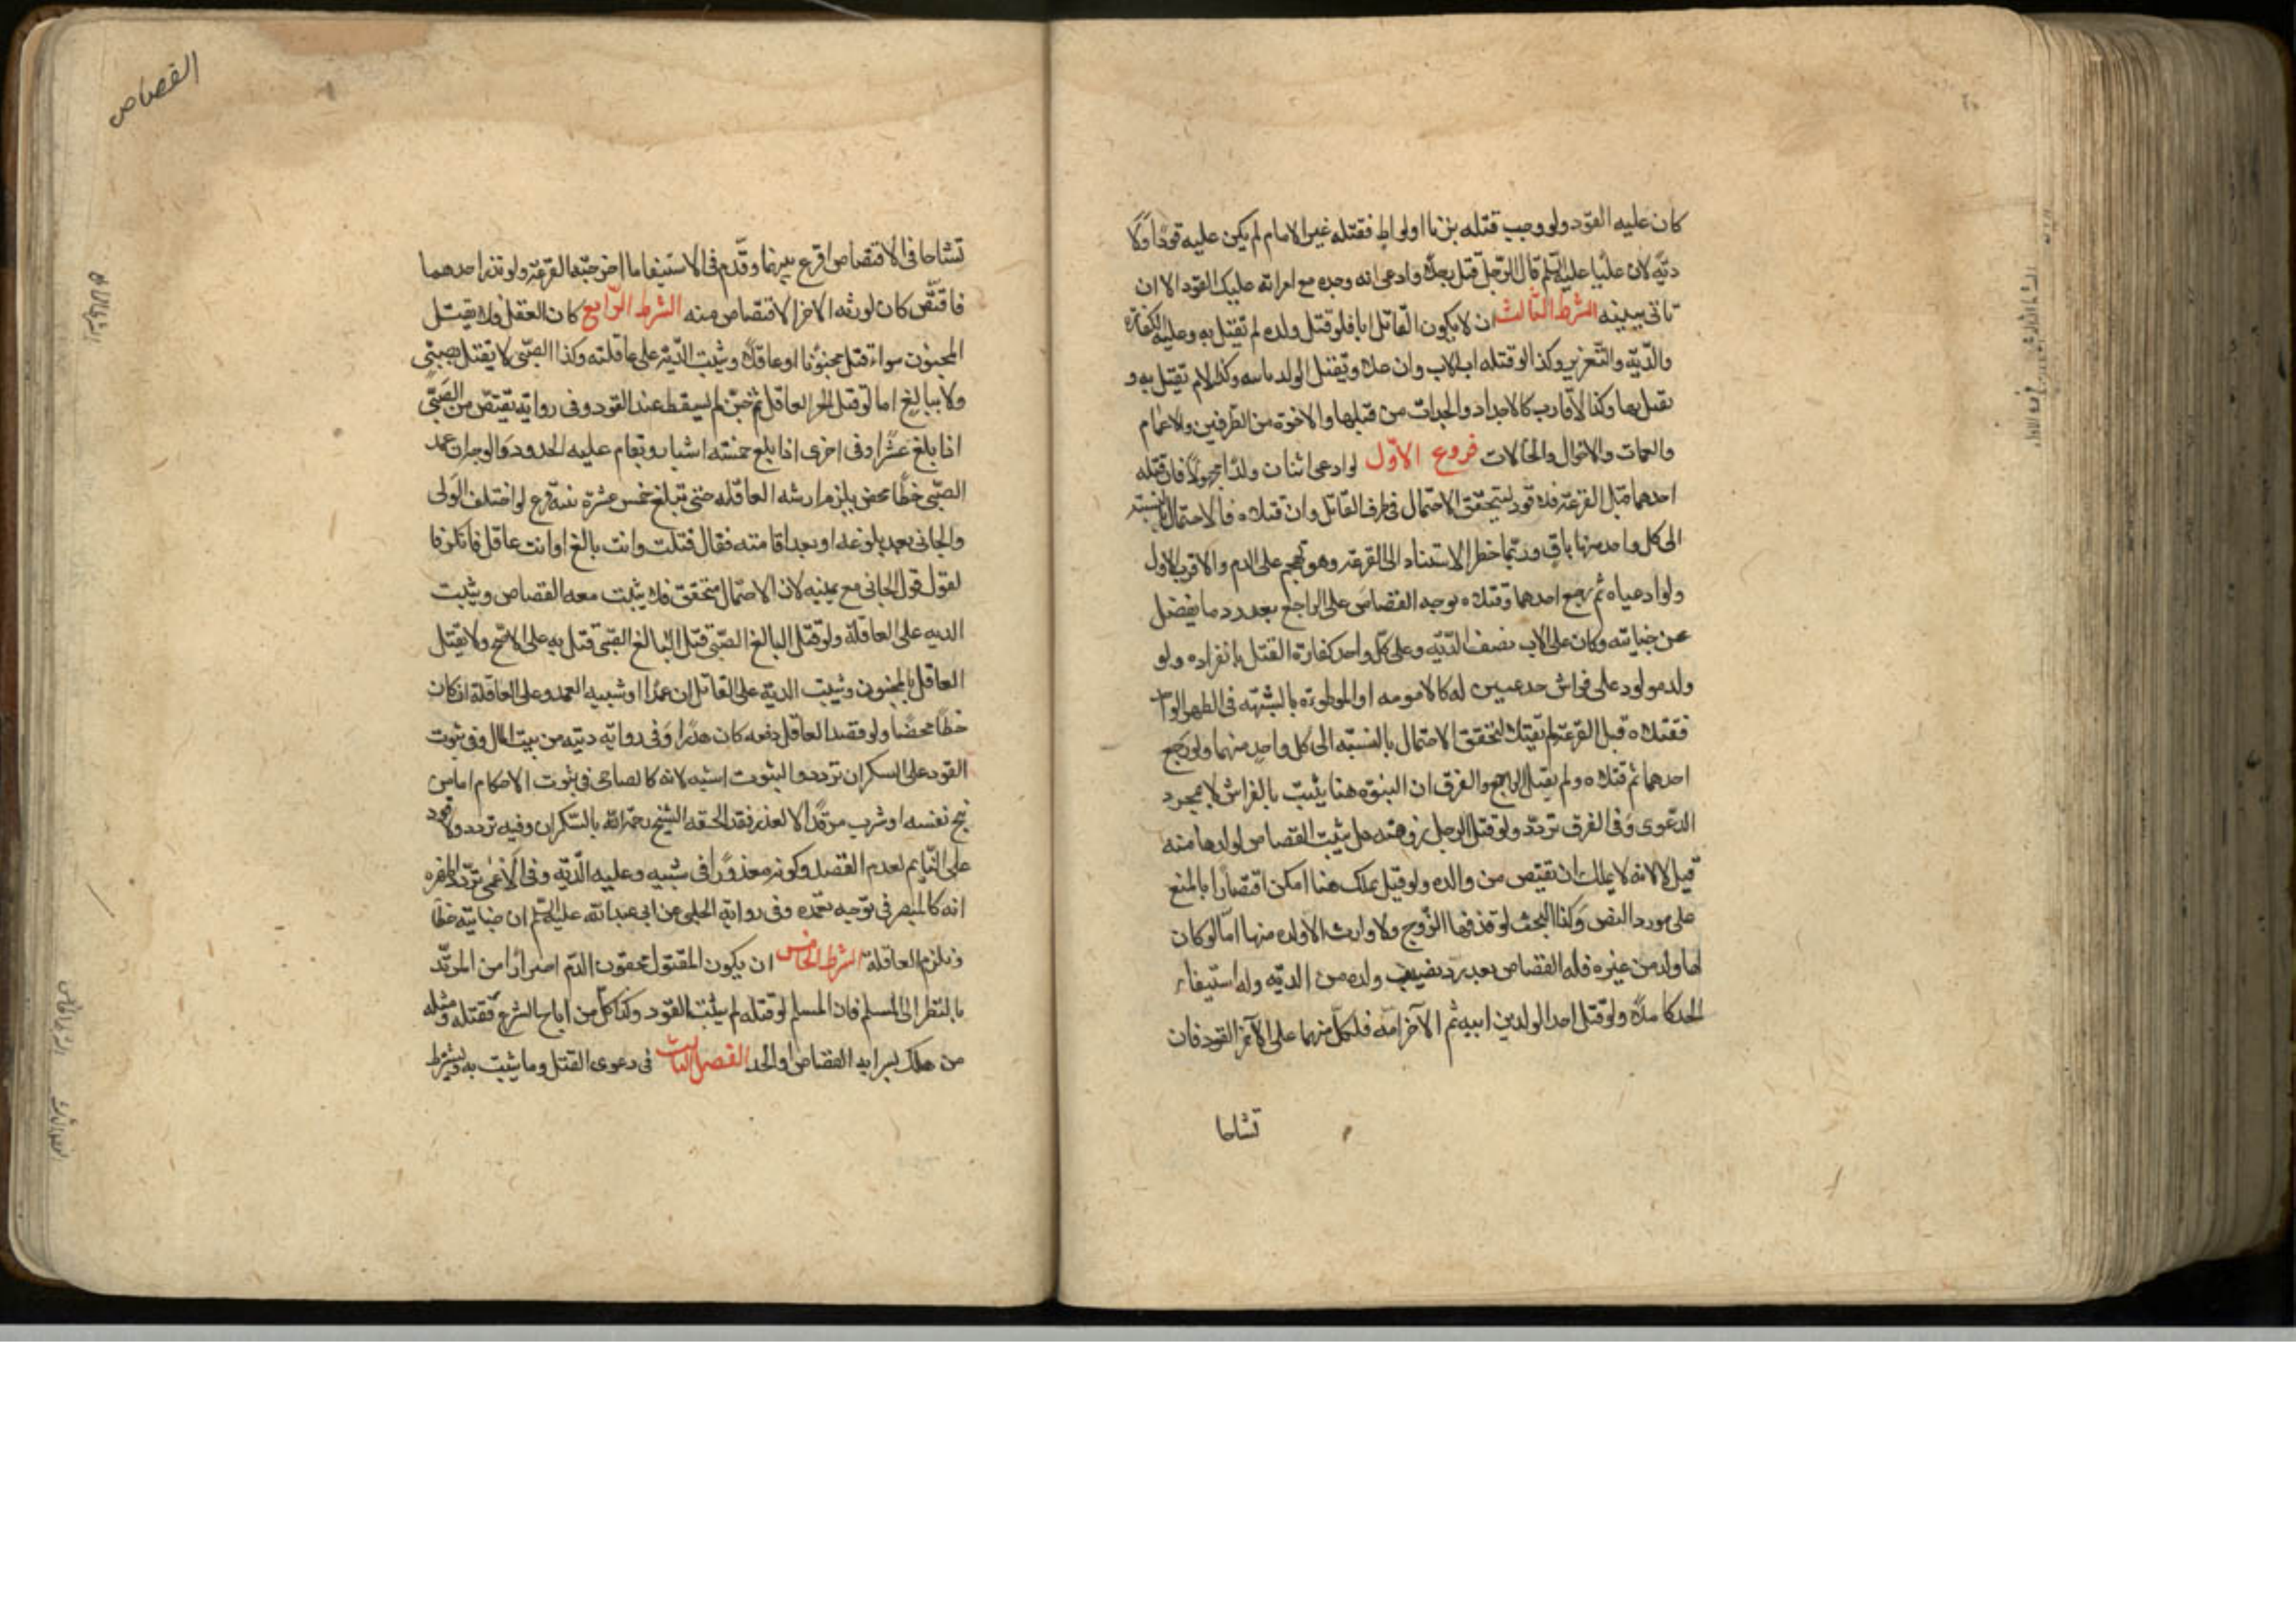 كان عليه القود ولو وجب قتله بزنا او لواط فقتله غير الامام لم يكن عليه قودا ولا
دية لان عليا عليه السلم قال لرجل قتل رجلا وادعى انه وجده مع امراته عليك القود الا ان
تاتى ببينة الشرط الثالث ان لا يكون القاتل ابا فلو قتل ولده لم يقتل به وعليه الكفارة
والدية والتعزير وكذا لو قتله اب الاب وان علا ويقتل الولد بابيه وكذا الام تقتل به و
يقتل بها وكذا الاقارب كالاجداد والجدات من قبلها والاخوة من الطرفين والاعمام
والعمات والاخوال والخالات فروع الاول لو ادعى اثنان ولدا مجهولا فان قتله
احدهما قبل القرعة فلا قود لتحقق الاحتمال فى طرف القاتل وان قتلاه فالاحتمال بالنسبة
الى كل واحد منهما باق وربما خطر الاستناد الى القرعة وهو تهجم على الدم والاقرب الاول
ولو ادعياه ثم رجع احدهما وقتلاه توجه القصاص على الراجع بعد رد ما يفضل
عن جنايته وكان على الاب نصف الدية وعلى كل واحد كفارة القتل بانفراده ولو
ولد مولود على فراش مدعيين له كالامة او الموطوءة بالشبهة فى الطهر الواحد
فقتلاه قبل القرعة لم يقتلا لتحقق الاحتمال بالنسبة الى كل واحد منهما ولو رجع
احدهما ثم قتلاه ولم يقتل الراجع والفرق ان البنوة هنا يثبت بالفراش لا بمجرد
الدعوى وفى الفرق تردد ولو قتل الرجل زوجته هل يثبت القصاص لولدها منه
قيل لا لانه لا يملك ان يقتص من والده ولو قيل يملك هنا امكن اقتصارا بالمنع
على مورد النص وكذا البحث لو قذفها الزوج ولا وارث الا ولده منها اما لو كان
لها ولد من غيره فله القصاص بعد رد نصيب ولده من الدية وله استيفاء
الحد كاملا ولو قتل احد الولدين ابيه ثم الآخر امه فلكل منهما على الآخر القود فان
تشاحا
القصاص
تشاحا فى الاقتصاص اقرع بينهما وقدم فى الاستيفاء ما اخرجته القرعة ولو بدر احدهما
فاقتص كان لورثة الاخر الاقتصاص منه الشرط الرابع كان العقل فلا يقتل
المجنون سواء قتل مجنونا او عاقلا ويثبت الدية على عاقلته وكذا الصبى لا يقتل بصبى
ولا ببالغ اما لو قتل الحر العاقل ثم جن لم يسقط عند القود وفى رواية يقتص من الصبى
اذا بلغ عشرا وفى اخرى اذا بلغ خمسة اشبار ويقام عليه الحدود والوجه ان عمد
الصبى خطا محض يلزم ارشه العاقلة حتى تبلغ خمس عشرة سنة فرع لو اختلف الولى
والجانى بعد بلوغه او بعد افاقته فقال قتلت وانت بالغ او انت عاقل فانكر فا
لقول قول الجانى مع يمينه لان الاحتمال متحقق فلا يثبت معه القصاص ويثبت
الدية على العاقلة ولو قتل البالغ الصبى قتل البالغ الصبى قتل به على الاصح ولا يقتل
العاقل بالمجنون ويثبت الدية على القاتل ان عمدا او شبيه العمد وعلى العاقلة ان كان
خطا محضا ولو قصد العاقل دفعه كان هدرا وفى رواية ديته من بيت المال وفى ثبوت
القود على السكران تردد والثبوت اشبه لانه كالصاحى فى ثبوت الاحكام اما من
بنج نفسه او شرب مرقدا لا لعذر فقد الحقه الشيخ رحمه الله بالسكران وفيه تردد ولا قود
على النايم لعدم القصد وكونه معذورا فى سببه وعليه الدية وفى الاعمى تردد اظهره
انه كالمبصر فى توجه بعمده وفى رواية الحلبى عن ابى عبد الله عليه السلم ان جنايته خطا
وتلزم العاقلة الشرط الخامس ان يكون المقتول محقون الدم احترازا من المرتد
بالنظر الى المسلم فان المسلم لو قتله لم يثبت القود وكذا كل من اباح الشرع فقتله ومثله
من هلك بسراية القصاص او الحد الفصل الثالث فى دعوى القتل وما يثبت به ويشترط